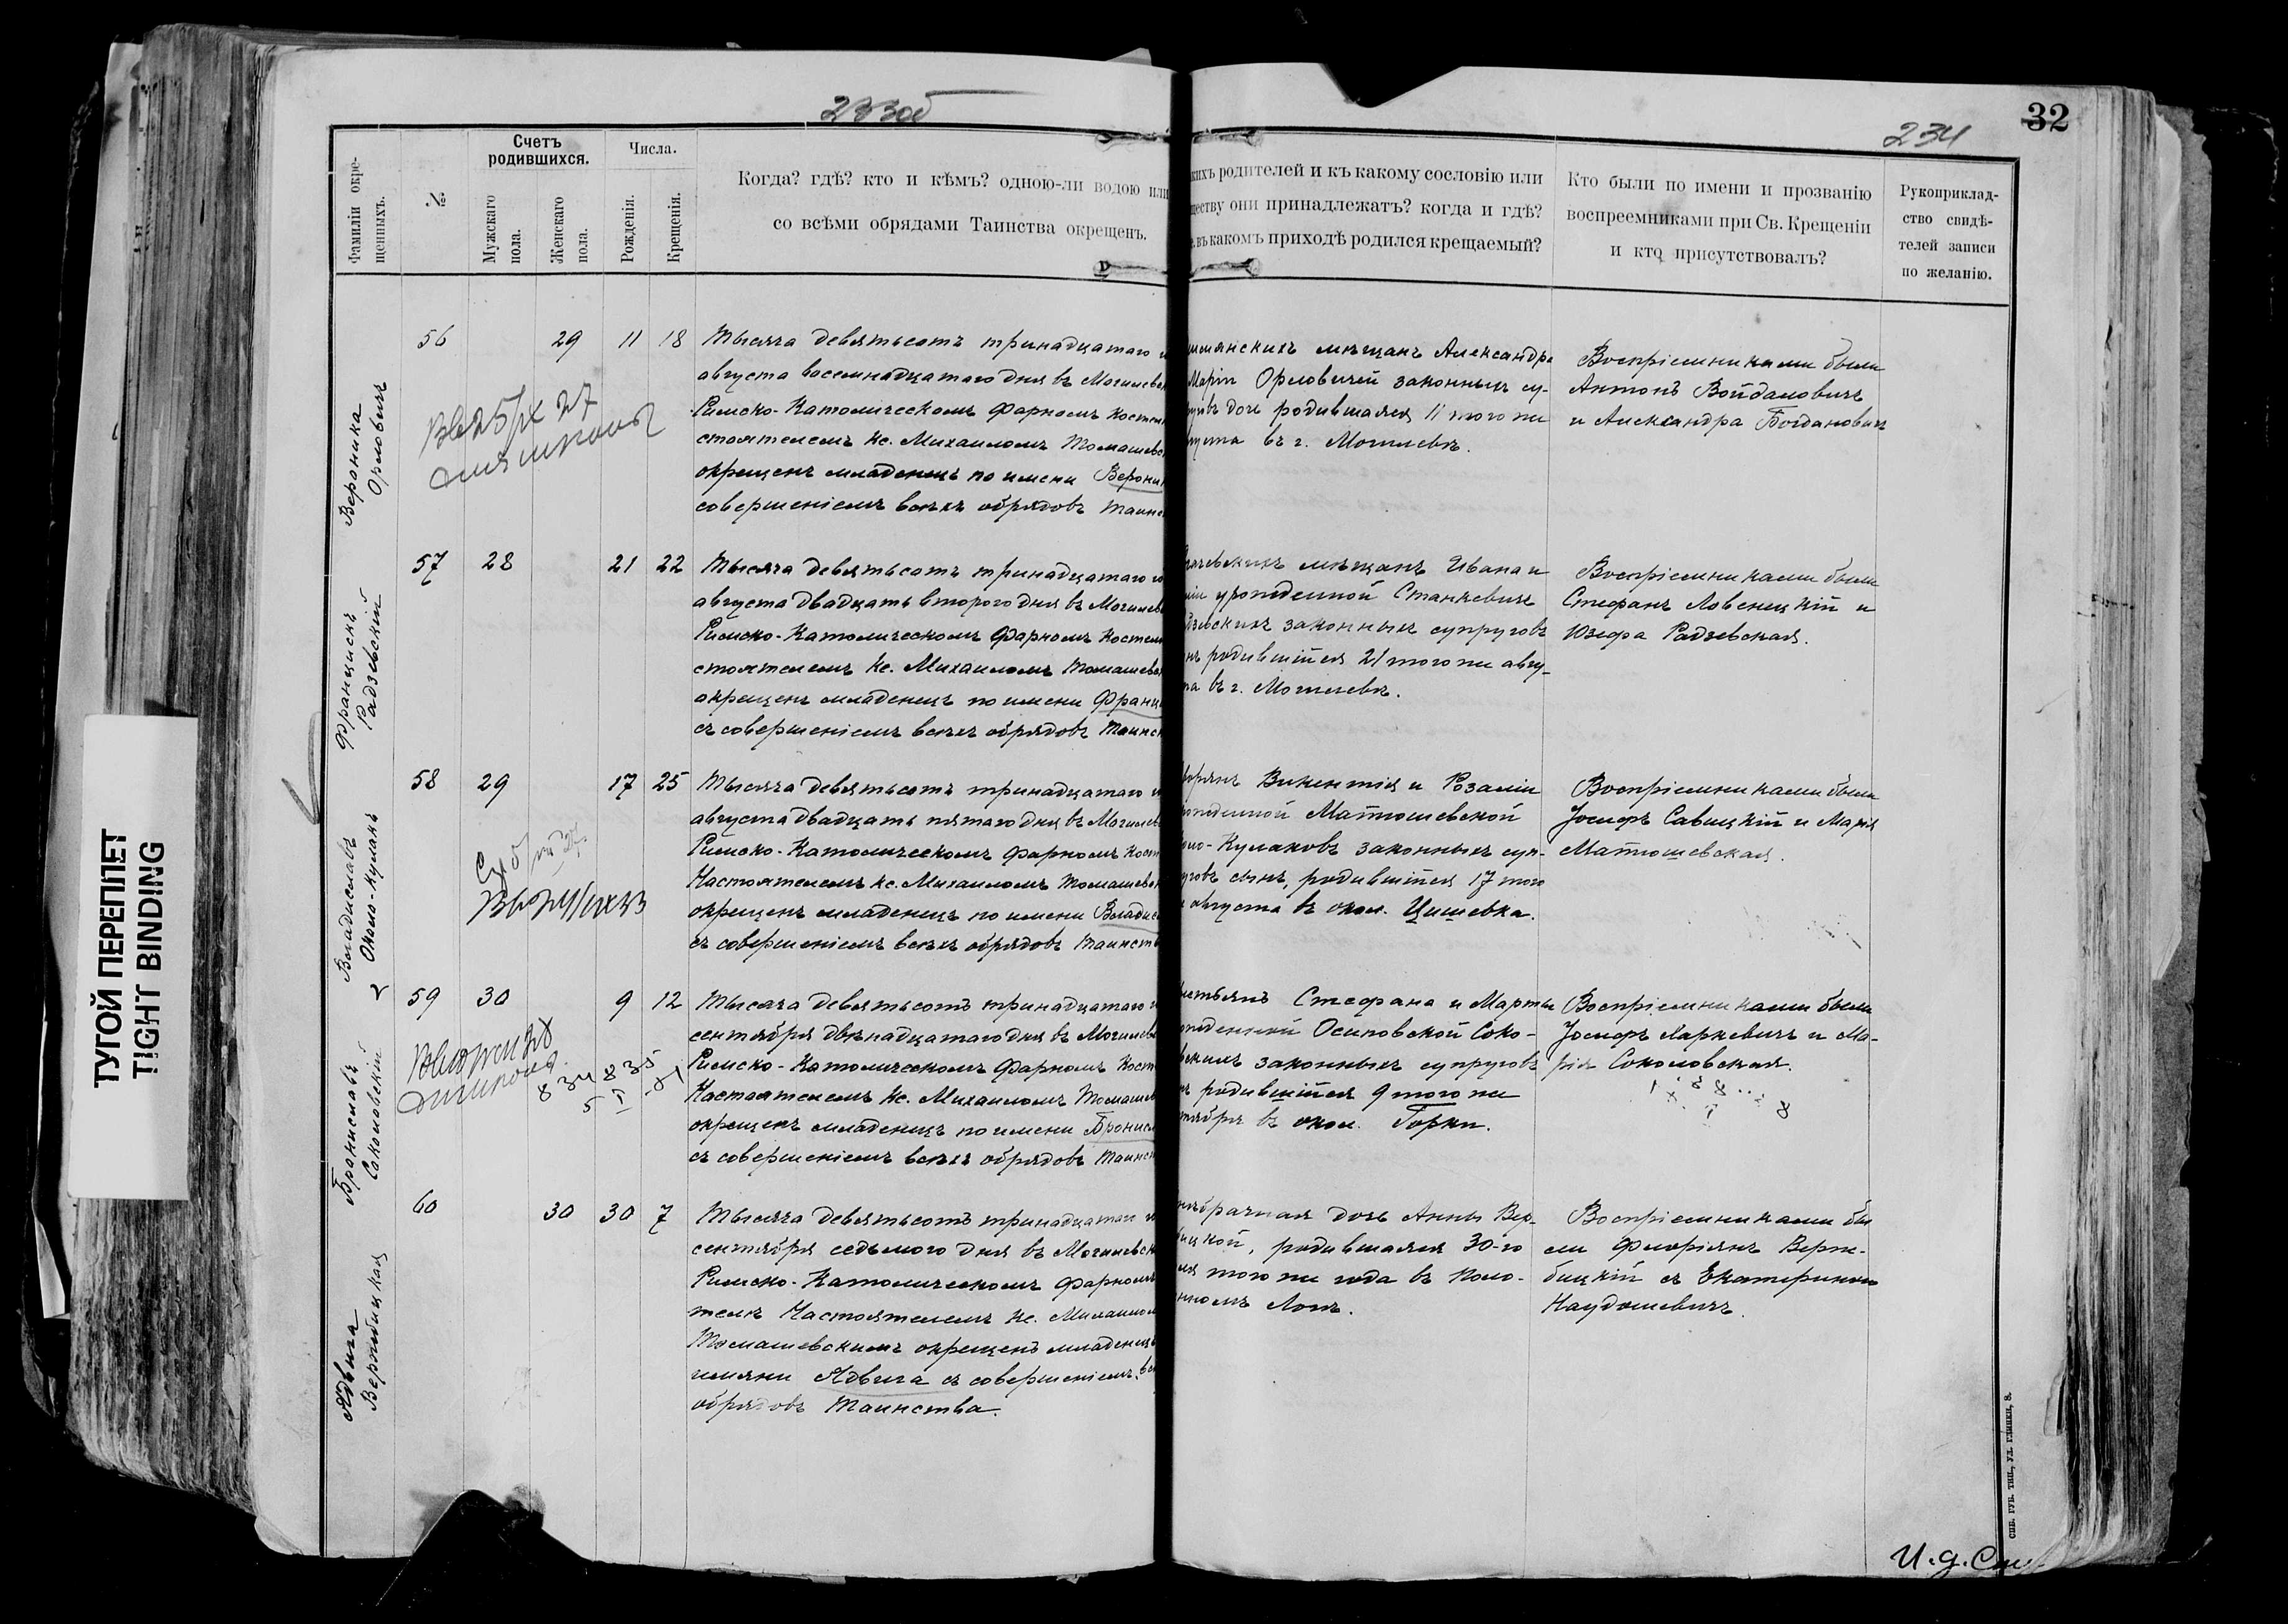 233об
234
32
ТУГОЙ ПЕРЕПЛЕТ
TIGHT BINDING
Фамиліи окре-
щенныхъ.
№
Счетъ
родившихся.
Мужскаго
пола.
Женскаго
пола.
Числа.
Рожденія.
Крещенія.
Когда? гдѣ? кто и кѣмъ? одною-ли водою или
со всѣми обрядами Таинства окрещенъ.
кихъ родителей и къ какому сословію или
ществу они принадлежатъ? когда и гдѣ?
въ какомъ приходѣ родился крещаемый?
Кто были по имени и прозванію
воспреемниками при Св. Крещеніи
и кто присутствовалъ?
Рукоприклад-
ство свидѣ-
телей записи
по желанію.
Вероника
Орловичъ
56 29 11 18
Тысяча девятьсотъ тринадцатаго
августа восемнадцатаго дня въ Могилев
Римско-Католическомъ Фарномъ Костел
стоятелемъ Кс. Михаиломъ Томашев
окрещенъ младенецъ по имени Верони
совершеніемъ всѣхъ обрядовъ Таинс
мѣщанъ Александра
Маріи Орловичей законныхъ су-
дочь родившаяся 11 того же
густа въ г. Могилевѣ.
Воспріемниками были
Антонъ Войдаловичъ
и Александра Богдановичъ
Францискъ
Радзевскій
57 28 21 22
Тысяча девятьсотъ тринадцатаго
августа двадцать втораго дня въ Могилев
Римско-Католическомъ Фарномъ Костел
стоятелемъ Кс. Михаиломъ Томашев
окрещенъ младенецъ по имени Франц
съ совершеніемъ всѣхъ обрядовъ Таинс
мѣщанъ Ивана и
урожденной Станкевичъ
дзевскихъ законныхъ супруговъ
нъ родившійся 21 того же авгу-
та въ г. Могилевѣ.
Воспріемниками были
Стефанъ Ловеницкій и
Юзефа Радзевская.
Владиславъ
Около-Кулакъ
58 29 17 25
Тысяча девятьсотъ тринадцатаго
августа двадцать пятаго дня въ Могилев
Римско-Католическомъ Фарномъ Кост
Настоятелемъ Кс. Михаиломъ Томашев
окрещенъ младенецъ по имени Владис
съ совершеніемъ всѣхъ обрядовъ Таинств
ворянъ Викентія и Розаліи
рожденной Матюшевской
оло-Кулаковъ законныхъ суп-
уговъ сынъ, родившійся 17 того
августа въ окол. Цишевка.
Воспріемниками были
Іосифъ Савицкій и Марія
Матюшевская.
Брониславъ
Соколовскій
59 30 9 12
Тысяча девятьсотъ тринадцатаго
сентября двѣнадцатаго дня въ Могилев
Римско-Католическомъ Фарномъ Кост
Настоятелемъ Кс. Михаиломъ Томашев
окрещенъ младенецъ по имени Бронисл
съ совершеніемъ всѣхъ обрядовъ Таинс
стьянъ Стефана и Марты
рожденной Осиповской Соко-
вскихъ законныхъ супруговъ
ъ родившійся 9 того же
нтября въ окол. Горки.
Воспріемниками были
Іосифъ Ларкевичъ и Ма-
рія Соколовская.
Ядвига
Вержбицкая
60 30 30 7
Тысяча девятьсотъ тринадцатаго
сентября седьмого дня въ Могилевск
Римско-Католическомъ Фарномъ
телѣ Настоятелемъ Кс. Михаилом
Томашевскимъ окрещенъ младенецъ
имяни Ядвига съ совершеніемъ вс
обрядовъ Таинства.
нѣбрачная дочь Анны Вер-
бицкой, родившаяся 30-го
того же года въ
Воспріемниками бы
ли Флоріянъ Верж-
бицкій съ Екатериною
Наудошевичъ.
СПБ. ГУБ. ТИП., УЛ. ГЛИНКИ, 8.
И.д.